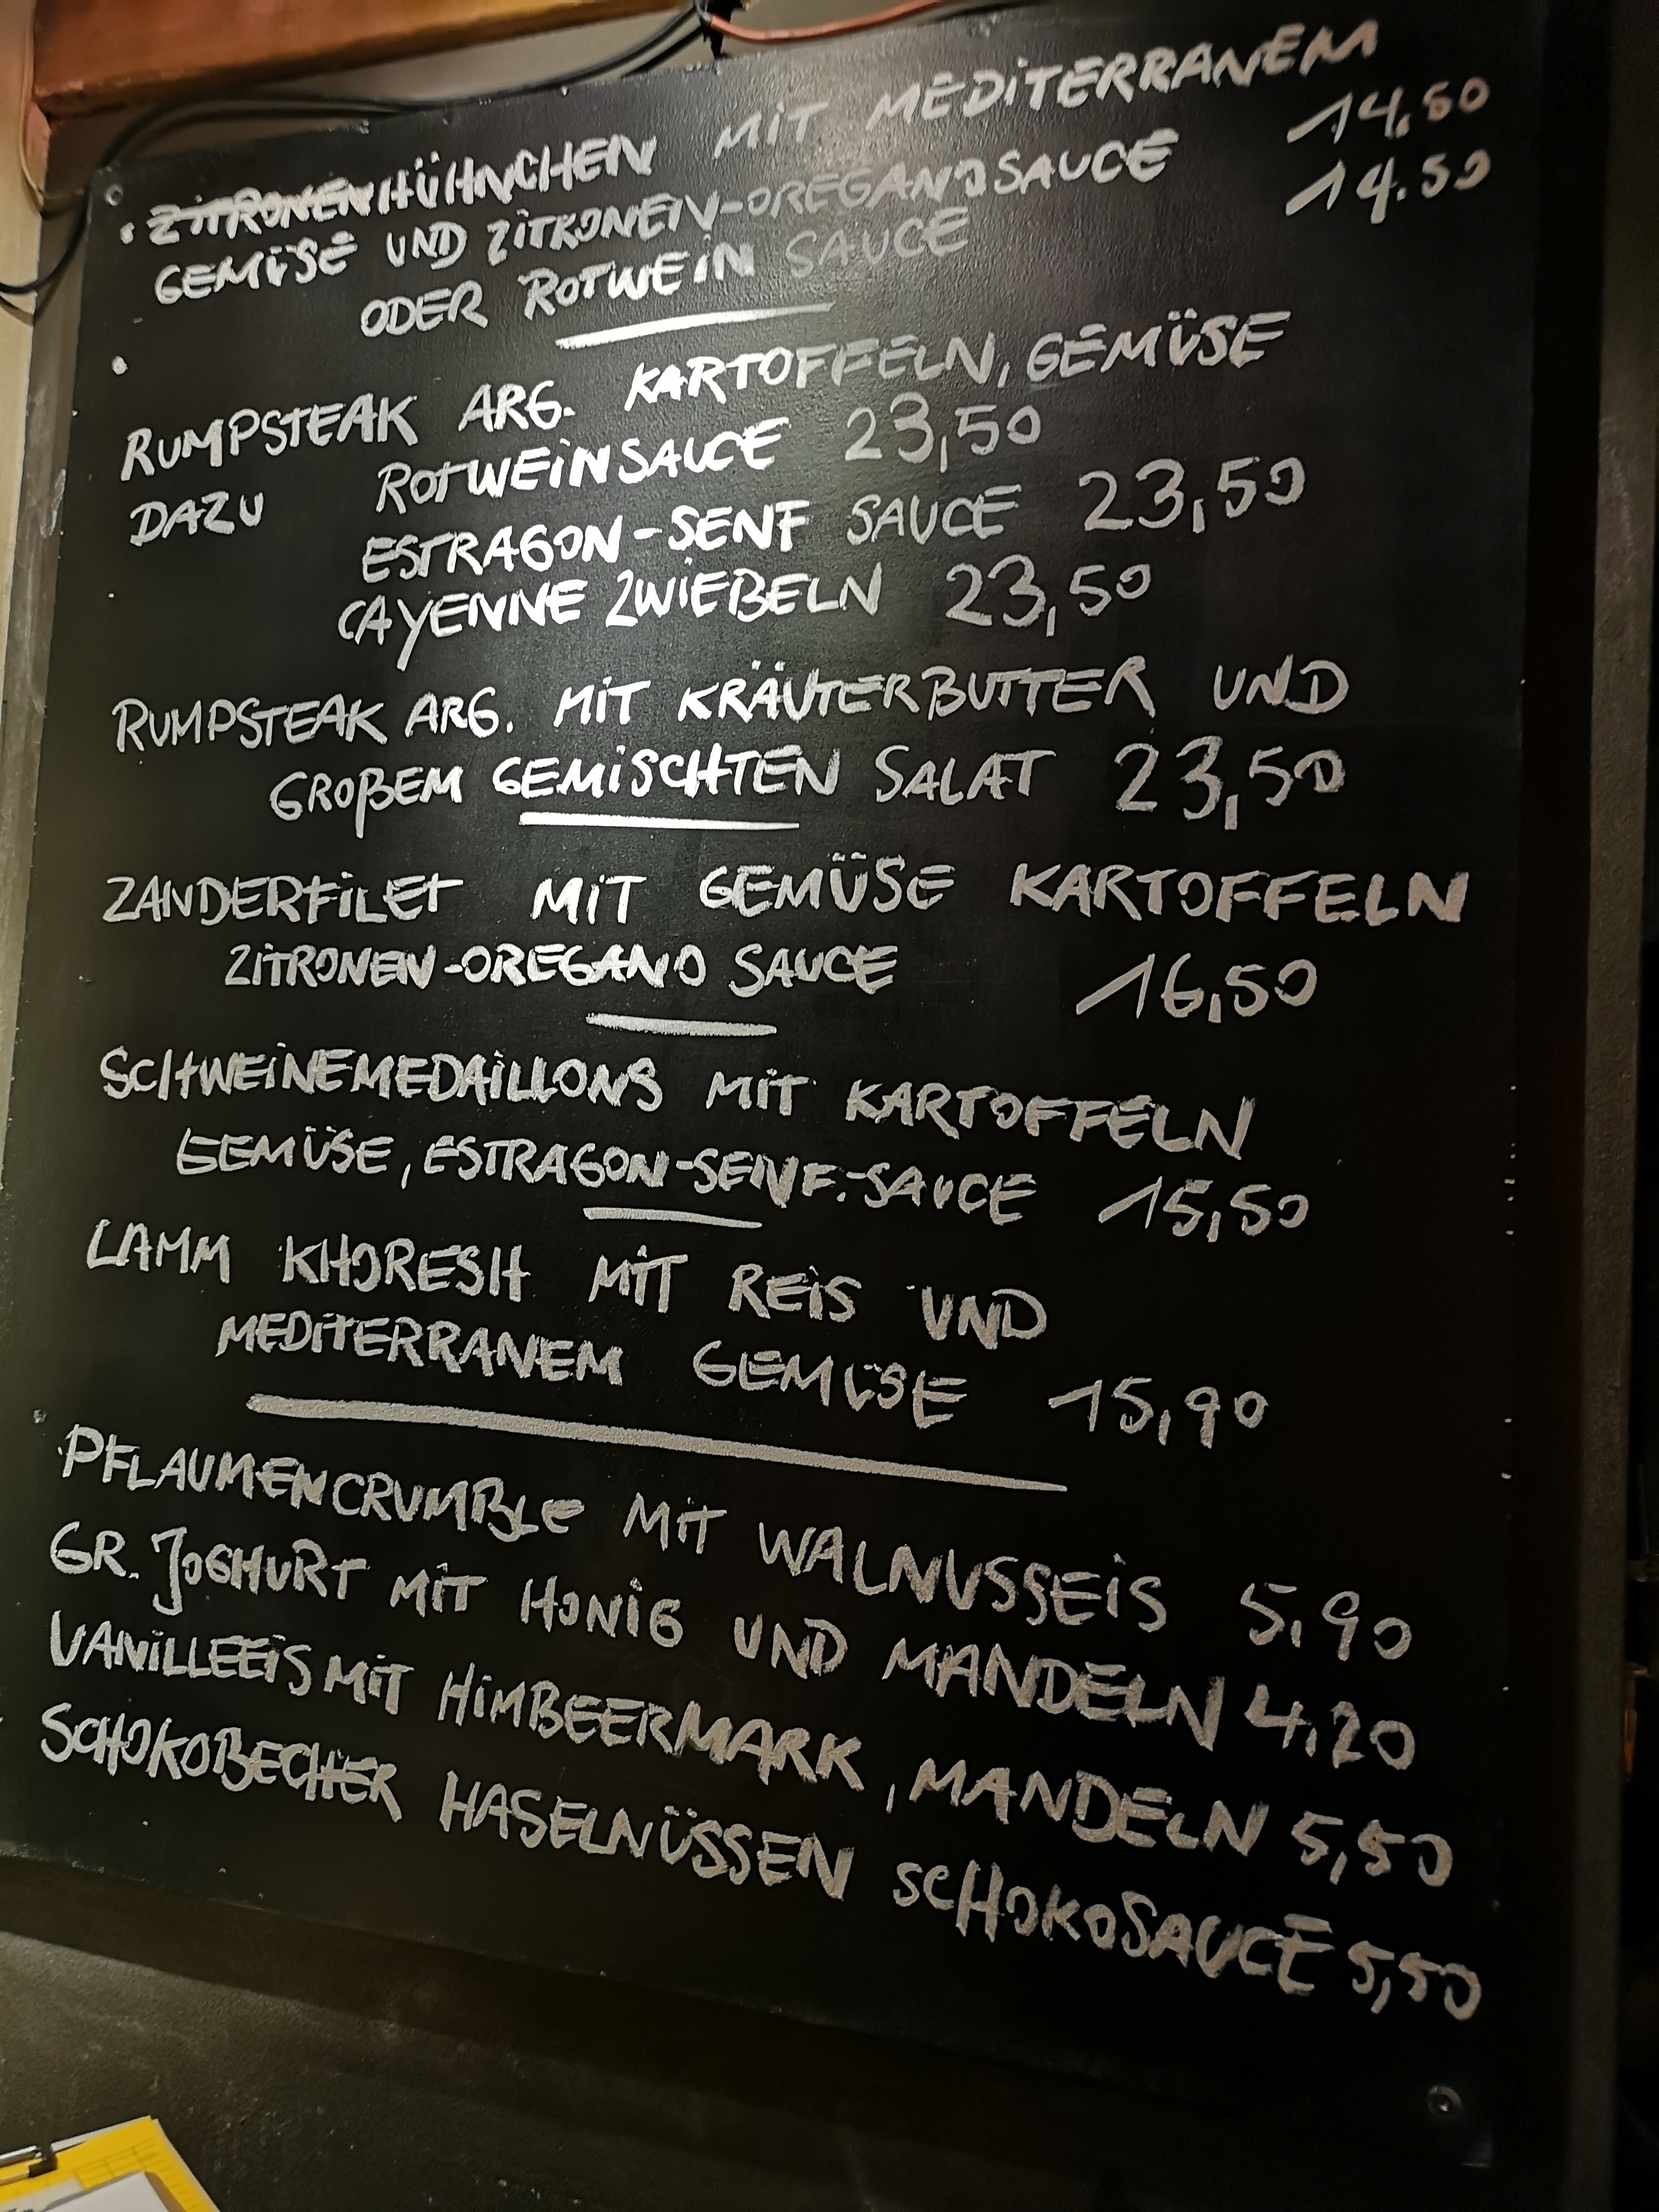 ZITRONENHÜHNCHEN MIT MEDITERRANEM
GEMÜSE UND ZITRONEN-OREGANOSAUCE 14,50
ODER ROTWEIN SAUCE 14.50
RUMPSTEAK ARG. KARTOFFELN, GEMÜSE
DAZU ROTWEINSAUCE 23,50
ESTRAGON-SENF SAUCE 23,50
CAYENNE ZWIEBELN 23,50
RUMPSTEAK ARG. MIT KRÄUTERBUTTER UND
GROßEM GEMISCHTEN SALAT 23,50
ZANDERFILET MIT GEMÜSE KARTOFFELN
ZITRONEN-OREGANO SAUCE 16,50
SCHWEINEMEDAILLONS MIT KARTOFFELN
GEMÜSE, ESTRAGON-SENF.-SAUCE 15,50
LAMM KHORESH MIT REIS UND
MEDITERRANEM GEMÜSE 15,90
PFLAUMENCRUMBLE MIT WALNUSSEIS 5,90
GR. JOGHURT MIT HONIG UND MANDELN 4,20
VANILLEEIS MIT HIMBEERMARK, MANDELN 5,50
SCHOKOBECHER HASELNÜSSEN SCHOKOSAUCE 5,50